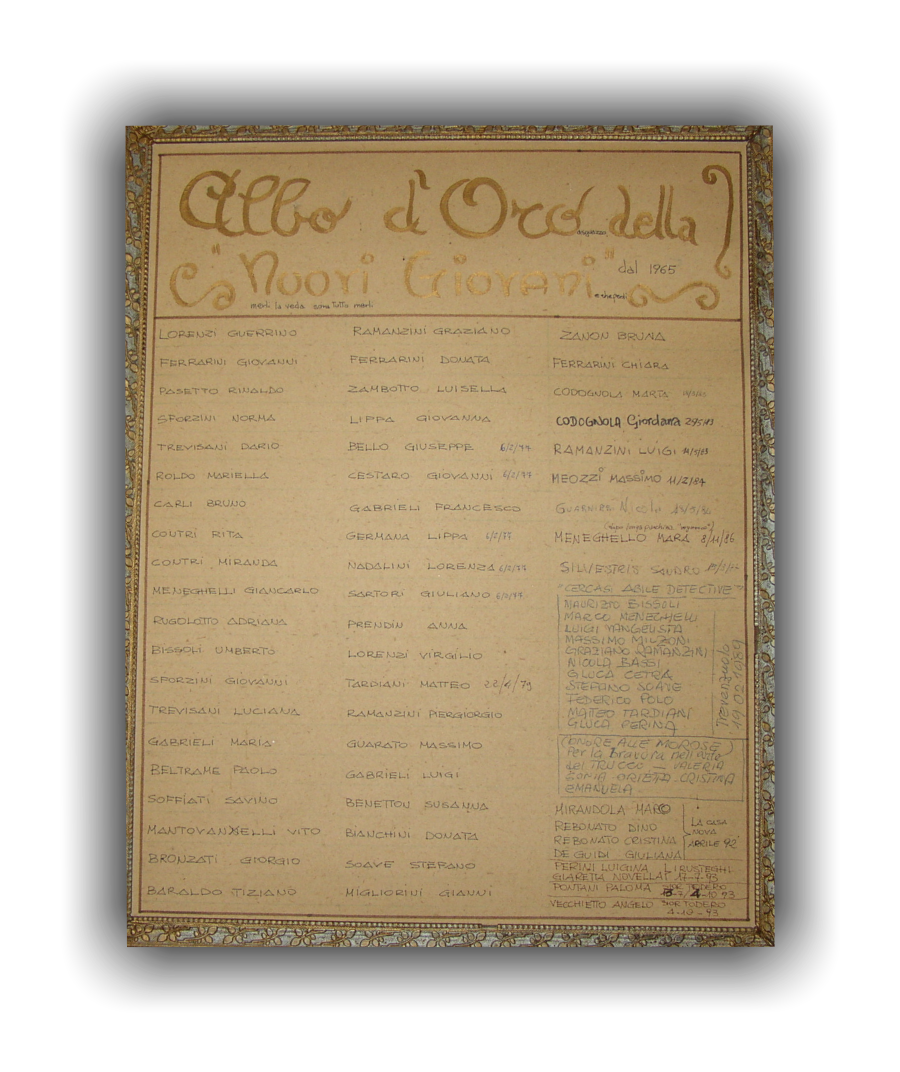 Albo d'Oro della
"Noovi Giovani" dal 1965
LORENZI GUERRINO
FERRARINI GIOVANNI
PASETTO RINALDO
SFORZINI NORMA
TREVISANI DARIO
ROLDO MARIELLA
CARLI BRUNO
CONTRI RITA
CONTRI MIRANDA
MENEGHELLI GIANCARLO
RUGOLOTTO ADRIANA
BISSOLI UMBERTO
SFORZINI GIOVANNI
TREVISANI LUCIANA
GABRIELI MARIA
BELTRAME PAOLO
SOFFIATI SAVINO
MANTOVANELLI VITO
BRONZATI GIORGIO
BARALDO TIZIANO
RAMANZINI GRAZIANO
FERRARINI DONATA
ZAMBOTTO LUISELLA
LIPPA GIOVANNA
BELLO GIUSEPPE 6/2/77
CESTARO GIOVANNI 6/2/77
GABRIELI FRANCESCO
GERMANA LIPPA 6/2/77
NADALINI LORENZA 6/2/77
SARTORI GIULIANO 6/2/77
PRENDIN ANNA
LORENZI VIRGILIO
TARDIANI MATTEO 22/4/79
RAMANZINI PIERGIORGIO
GUARATO MASSIMO
GABRIELI LUIGI
BENETTON SUSANNA
BIANCHINI DONATA
SOAVE STEFANO
MIGLIORINI GIANNI
ZANON BRUNA
FERRARINI CHIARA
CODOGNOLA MARTA
CODOGNOLA Giordana
RAMANZINI LUIGI
MEOZZI MASSIMO 11/2/84
GUARNIERI NICOLA
MENEGHELLO MARA 8/11/86
SILVESTRIS SANDRO
"CERCASI ABILE DETECTIVE"
MAURIZIO BISSOLI
MARCO MENEGHELLI
LUIGI VANGELISTA
MASSIMO MILZONI
GRAZIANO RAMANZINI
NICOLA BASSI
GLUCA CETRA
STEFANO SOAVE
FEDERICO POLO
MATTEO TARDIANI
GLUCA PERINA
Trevenzuolo
19.02.1989
(ONORE ALLE MOROSE)
Per la bravura nell'
del TRUCCO - VALERIA
SONIA ORIETA - CRISTINA
EMANUELA
MIRANDOLA MARO
REBONATO DINO
REBONATO CRISTINA
DE GUIDI GIULIANA
LA CASA
NOVA
APRILE 92
PERINI LUIGINA I RUSTEGHI
GIARETTA NOVELLA
PONTANI PALOMA SIOR TODERO
VECCHIETTO ANGELO SIOR TODERO
4-10-93